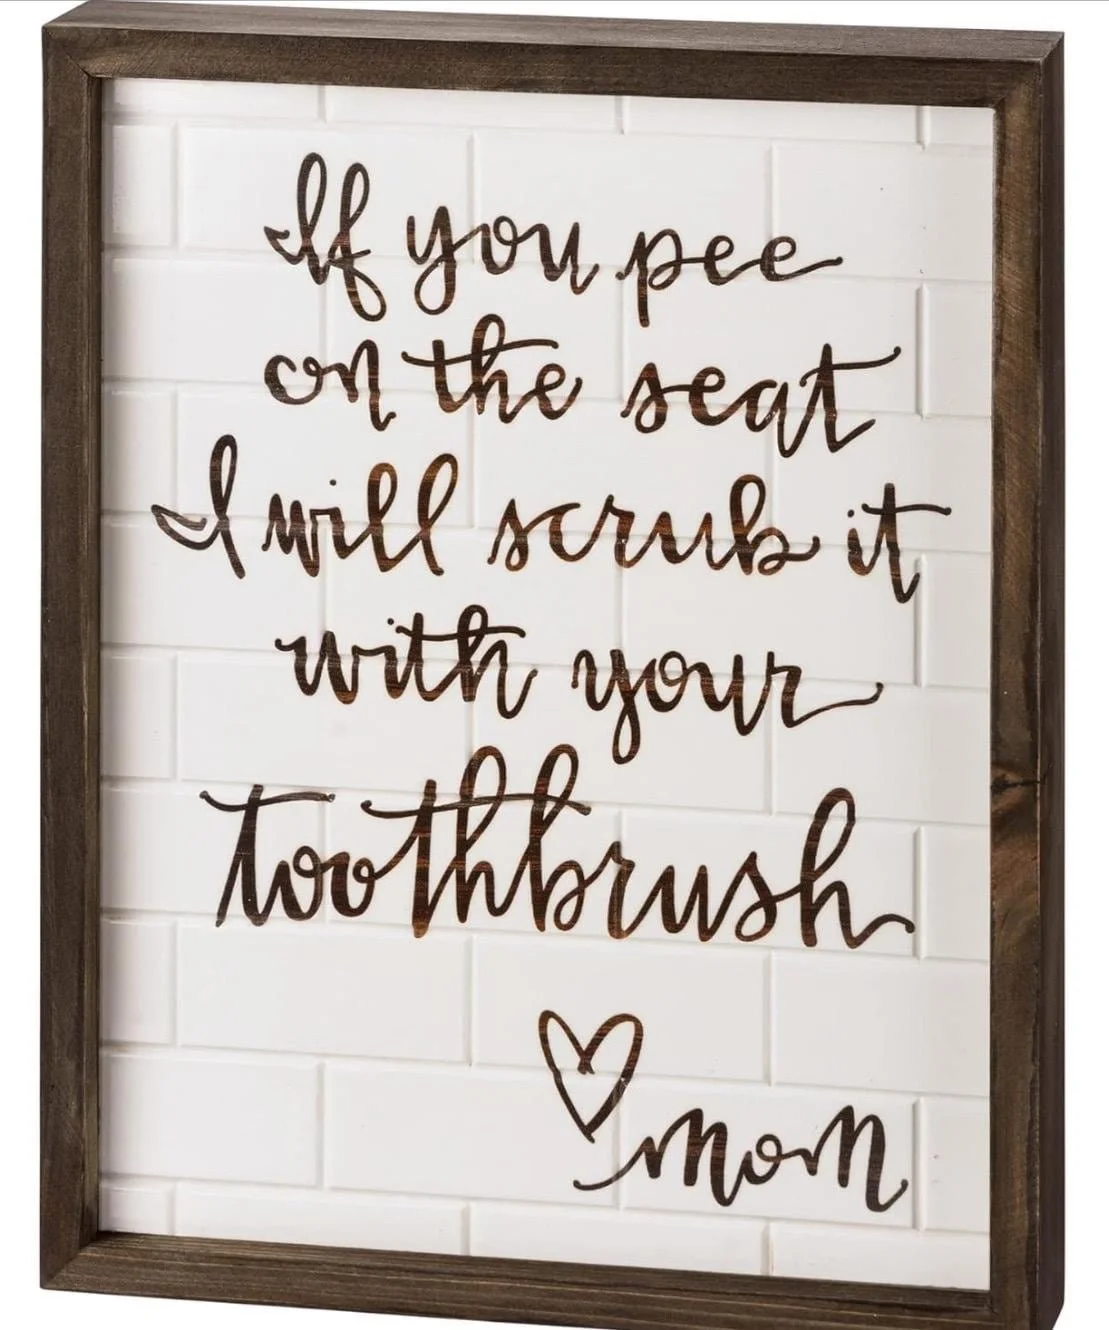 If you pee
on the seat
I will scrub it
with your
toothbrush
mom